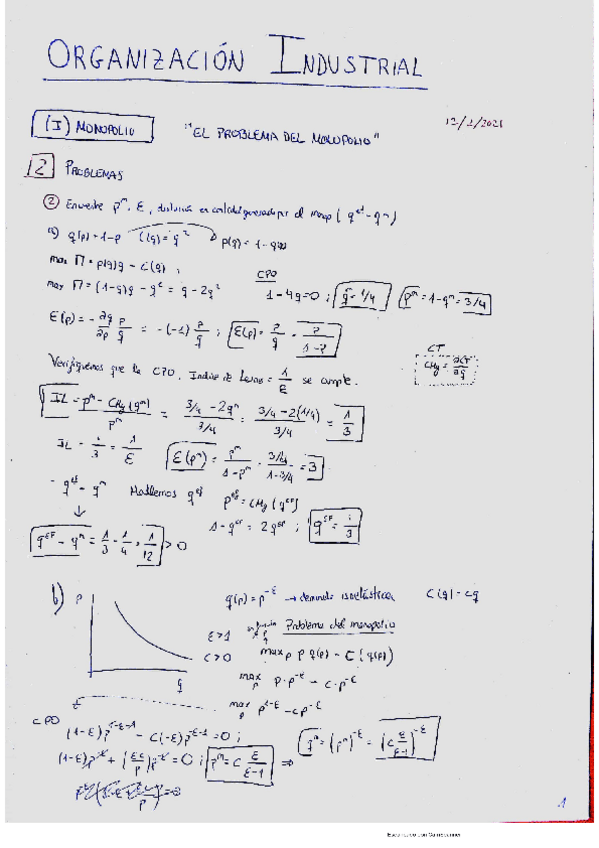 ORGANIZACIÓN INDUSTRIAL
(I) MONOPOLIO "EL PROBLEMA DEL MONOPOLIO" 12/2/2021
12 PROBLEMAS
② Encuentre pᵐ, ε, distorsión en cantidad generada por el monop (qᵉᶠ - qᵐ)
a) q(p) = 1-p C(q) = q² p(q) = 1-q
max Π = p(q)q - C(q);
max Π = (1-q)q - q² = q - 2q²
CPO
1-4q=0; qᵐ = 1/4 pᵐ = 1-qᵐ = 3/4
ε(p) = - ∂q/∂p p/q = -(-1) p/q; ε(p) = p/q = p/1-p
CT
CMg = ∂CT/∂q
Verifiquemos que la CPO, Indice de Lerner = 1/ε se cumple.
IL = pᵐ - CMg(qᵐ)/pᵐ = 3/4 - 2qᵐ/3/4 = 3/4 - 2(1/4)/3/4 = 1/3
IL = 1/3 = 1/ε ε(pᵐ) = pᵐ/1-pᵐ = 3/4/1-3/4 = 3
- qᵉᶠ - qᵐ Hallemos qᵉᶠ pᵉᶠ = CMg(qᴱᶠ)
1-qᴱᶠ = 2qᴱᶠ; qᴱᶠ = 1/3
qᴱᶠ - qᵐ = 1/3 - 1/4 = 1/12 > 0
b) p q(p) = p^-ε → demanda isoelástica C(q) = cq
ε>1 Problema del monopolio
c>0 max p p q(p) - C(q(p))
q
max p p·p^-ε - c·p^-ε
max p p^1-ε - cp^-ε
CPO
(1-ε)p^1-ε-1 - c(-ε)p^-ε-1 = 0;
(1-ε)p^-ε + (εc/p)p^-ε = 0; pᵐ = c ε/ε-1 ⇒ qᵐ = (pᵐ)^-ε = (c ε/ε-1)^-ε
1